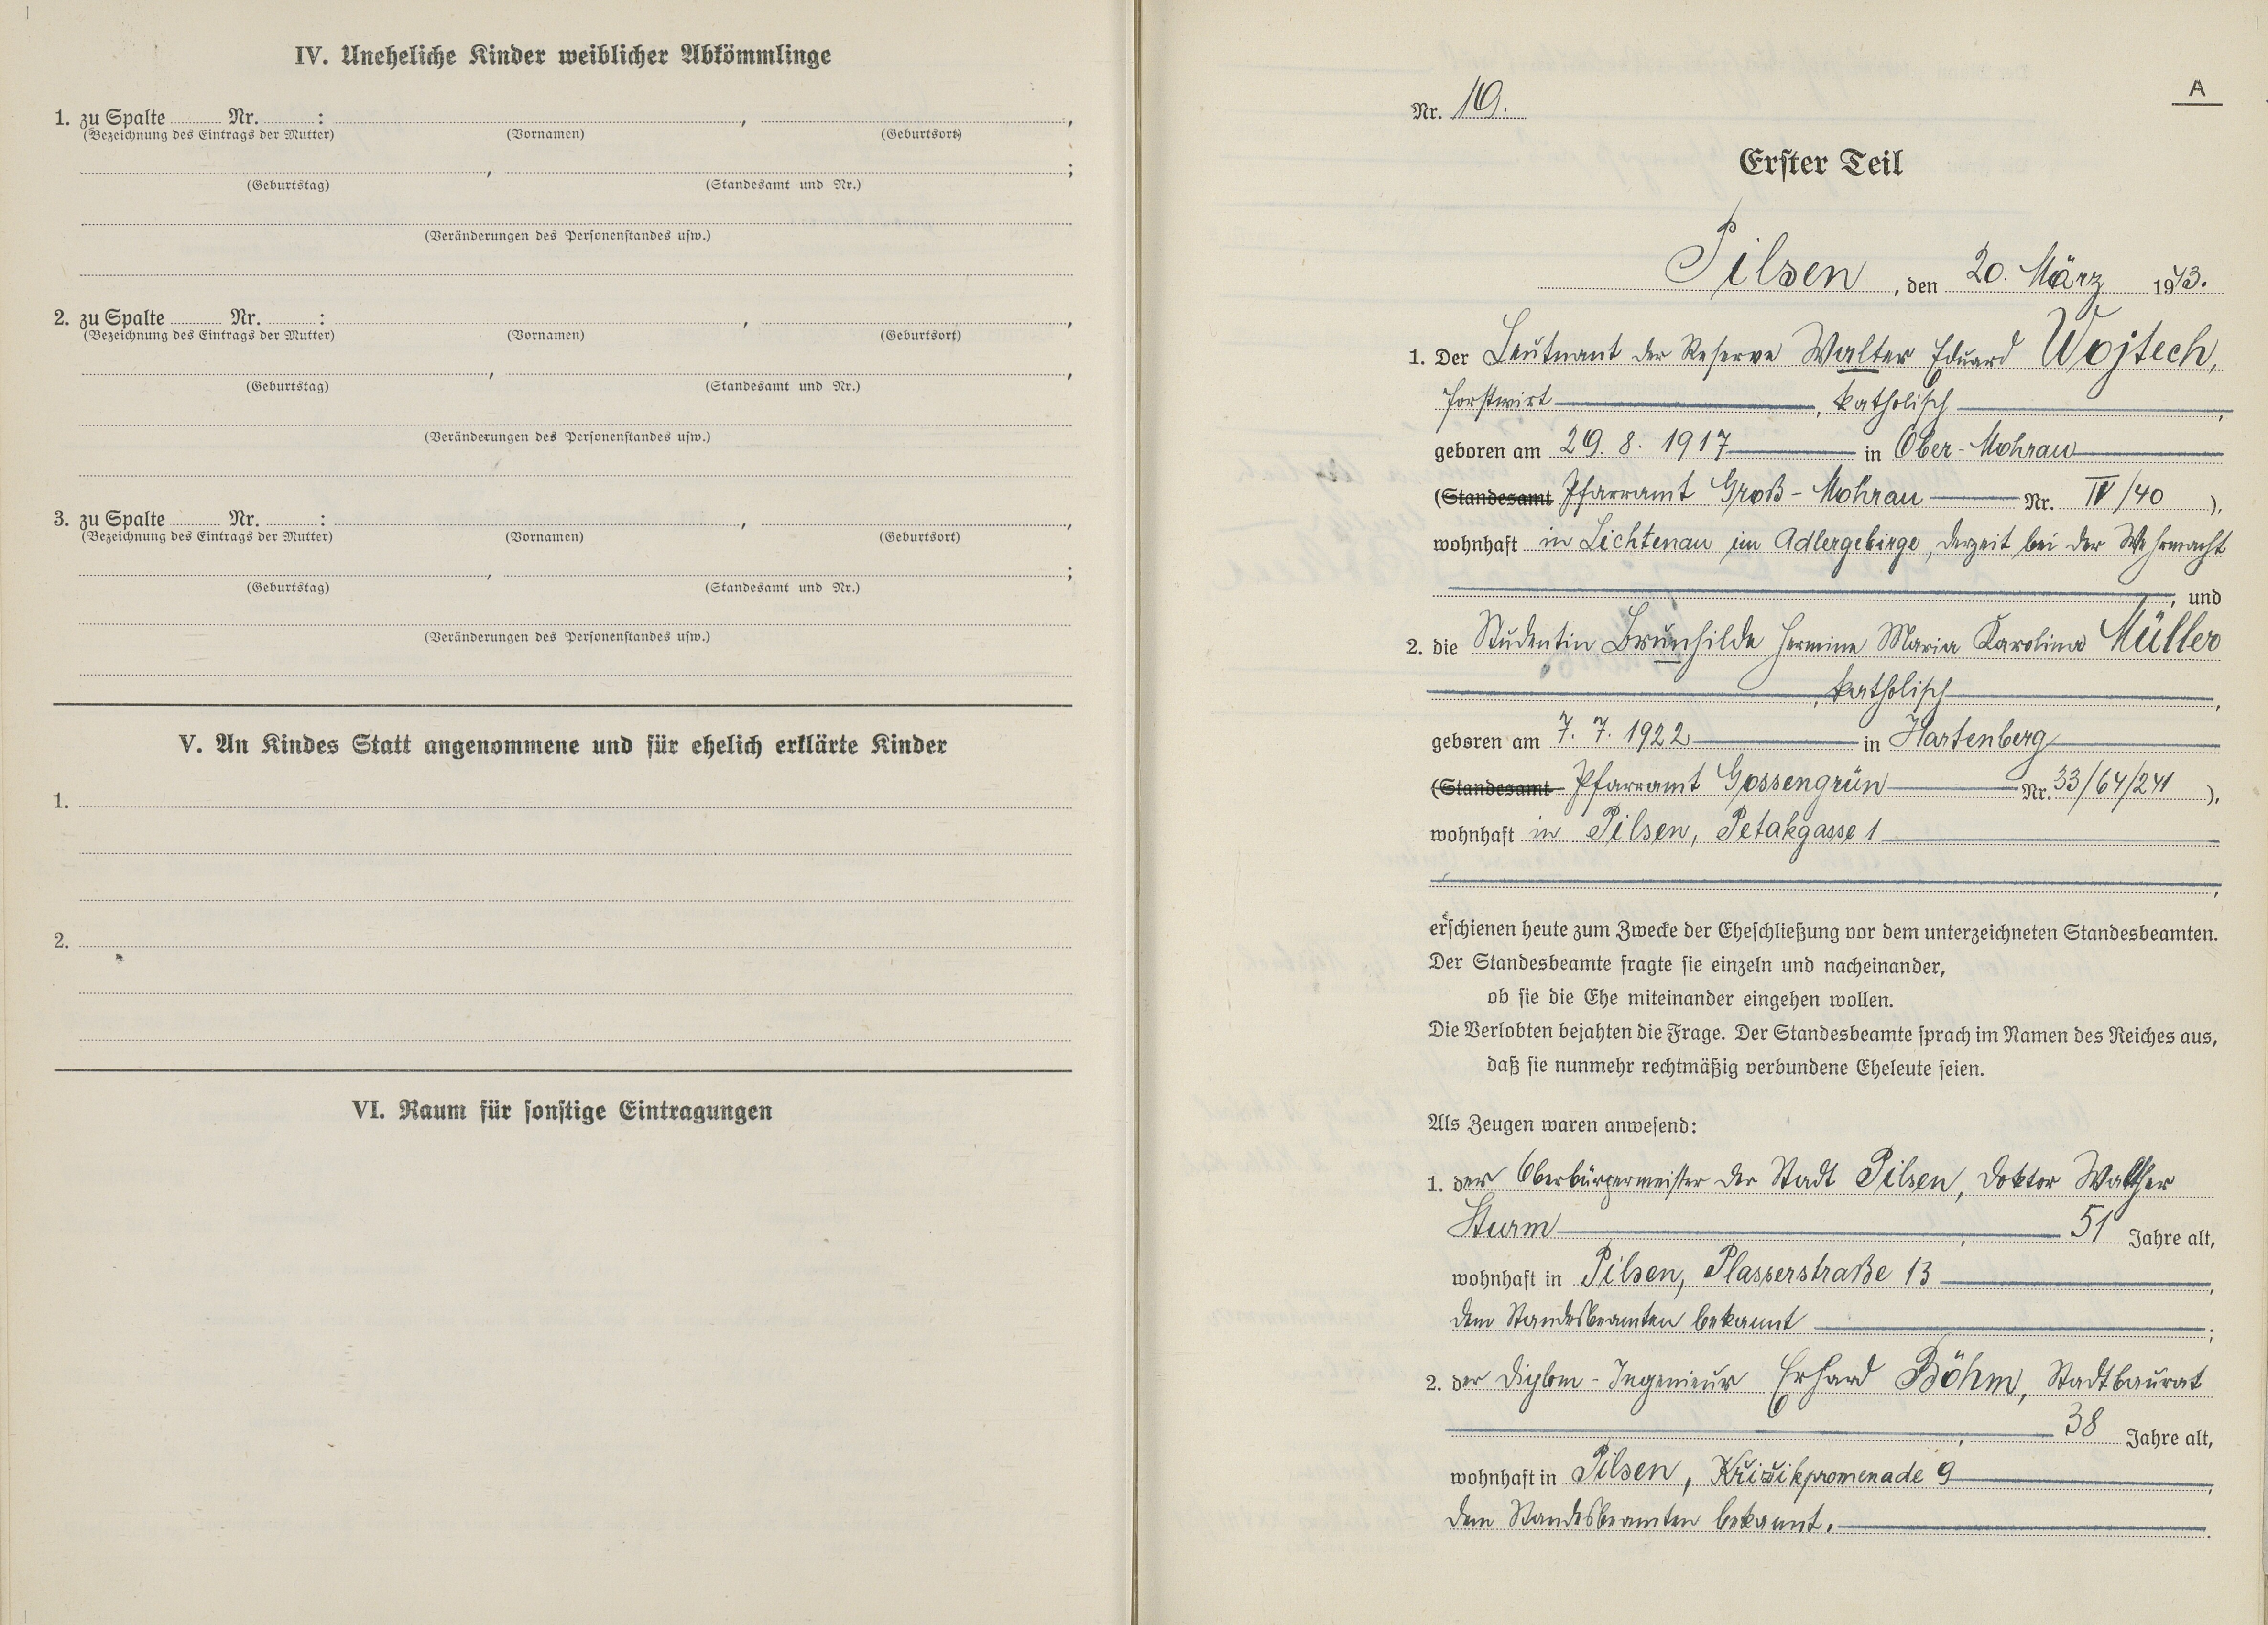 IV. Uneheliche Kinder weiblicher Abkömmlinge
1. zu Spalte ........ Nr. ........ : ........, ........,
(Bezeichnung des Eintrags der Mutter) (Vornamen) (Geburtsort)
........, ........;
(Geburtstag) (Standesamt und Nr.)
(Veränderungen des Personenstandes usw.)
2. zu Spalte ........ Nr. ........ : ........, ........,
(Bezeichnung des Eintrags der Mutter) (Vornamen) (Geburtsort)
........, ........,
(Geburtstag) (Standesamt und Nr.)
(Veränderungen des Personenstandes usw.)
3. zu Spalte ........ Nr. ........ : ........, ........,
(Bezeichnung des Eintrags der Mutter) (Vornamen) (Geburtsort)
........, ........;
(Geburtstag) (Standesamt und Nr.)
(Veränderungen des Personenstandes usw.)
V. An Kindes Statt angenommene und für ehelich erklärte Kinder
1.
2.
VI. Raum für sonstige Eintragungen
A
Nr. 19.
Erster Teil
Pilsen, den 20. März 1943.
1. Der Leutnant der Reserve Walter Eduard Wojtech,
Forstwirt, katholisch,
geboren am 29. 8. 1917 in Ober-Mohrau
(Standesamt Pfarramt Groß-Mohrau Nr. IV/40 ),
wohnhaft in Lichtenau im Adlergebirge, derzeit bei der Wehrmacht
, und
2. die Studentin Brunhilde Hermine Maria Karolina Müller
, katholisch,
geboren am 7. 7. 1922 in Hartenberg
(Standesamt Pfarramt Gossengrün Nr. 33/64/241 ),
wohnhaft in Pilsen, Petakgasse 1
,
erschienen heute zum Zwecke der Eheschließung vor dem unterzeichneten Standesbeamten.
Der Standesbeamte fragte sie einzeln und nacheinander,
ob sie die Ehe miteinander eingehen wollen.
Die Verlobten bejahten die Frage. Der Standesbeamte sprach im Namen des Reiches aus,
daß sie nunmehr rechtmäßig verbundene Eheleute seien.
Als Zeugen waren anwesend:
1. der Oberbürgermeister der Stadt Pilsen, Doktor Walther
Sturm, 51 Jahre alt,
wohnhaft in Pilsen, Plasserstraße 13,
dem Standesbeamten bekannt;
2. der Diplom-Ingenieur Erhard Böhm, Stadtbaurat
, 38 Jahre alt,
wohnhaft in Pilsen, Křižikpromenade 9,
dem Standesbeamten bekannt.